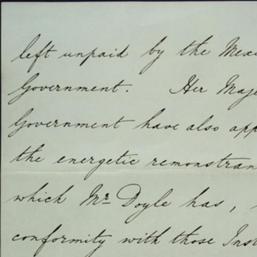 left unpaid by the Mexi
Government. Her Maje
Government have also app
the energetic remonstran
which Mr Doyle has,
conformity with those Inst